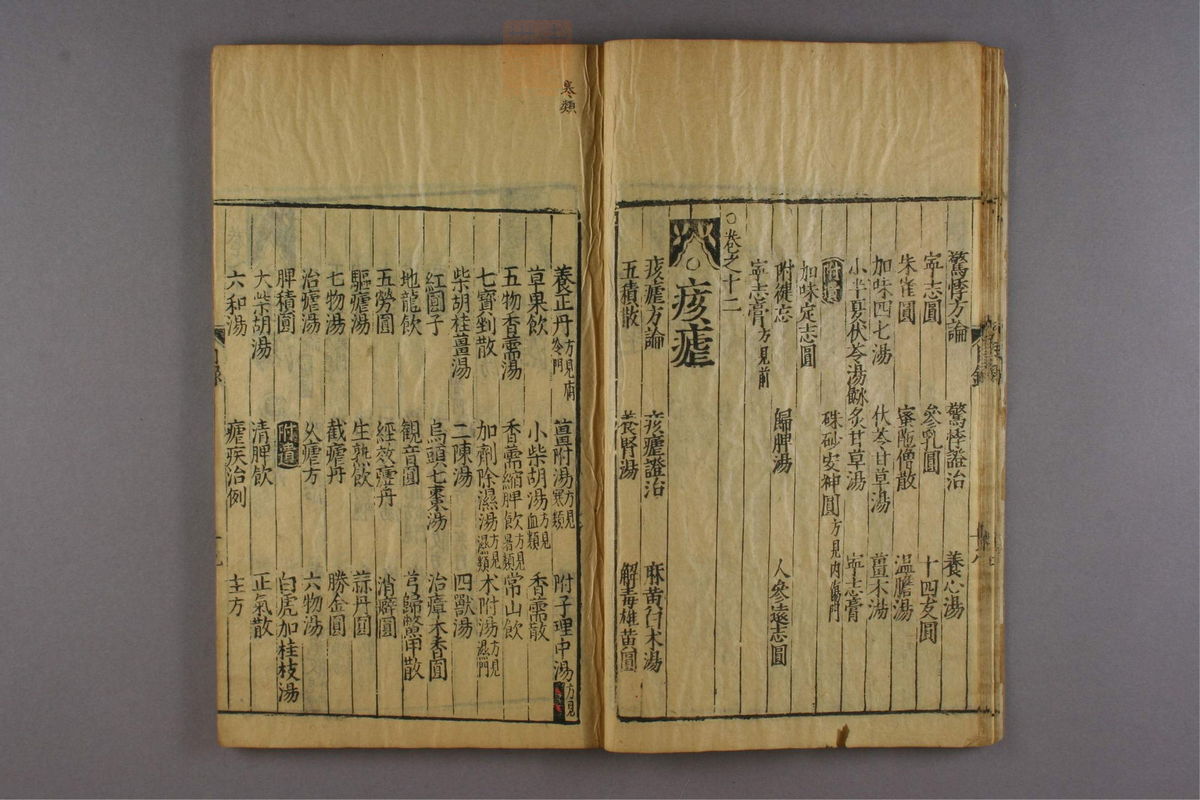 驚悸方論 驚悸證治 養心湯
寧志圓 參乳圓 十四友圓
朱雀圓 蜜陁僧散 溫膽湯
加味四七湯 茯苓甘草湯 薑朮湯
小半夏茯苓湯 炙甘草湯 寧志膏
附遺 硃砂安神圓方見內傷門
加味定志圓
附健忘 歸脾湯 人參遠志圓
寧志膏方見前
○卷之十二
○痎瘧
痎瘧方論 痎瘧證治 麻黃白朮湯
五積散 養腎湯 解毒雄黃圓
寒類
養正丹方見痼冷門 薑附湯方見寒類 附子理中湯方見
草果飲 小柴胡湯方見血類 香薷散
五物香薷湯 香薷縮脾飲方見暑類 常山飲
七寶剉散 加劑除濕湯方見濕類 朮附湯方見濕門
柴胡桂薑湯 二陳湯 四獸湯
紅圓子 烏頭七棗湯 治瘴木香圓
地龍飲 觀音圓 芎歸鱉甲散
五勞圓 經效瘧丹 消癖圓
驅瘧湯 生熟飲 蒜丹圓
七物湯 截瘧丹 勝金圓
治瘧湯 久瘧方 六物湯
脾積圓 附遺 白虎加桂枝湯
大柴胡湯 清脾飲 正氣散
六和湯 瘧疾治例 主方
目錄